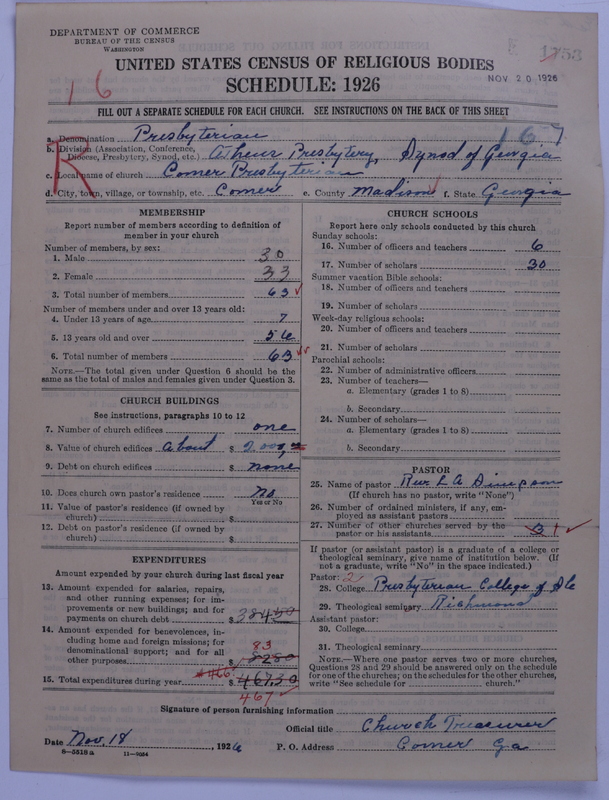 DEPARTMENT OF COMMERCE
BUREAU OF THE CENSUS
WASHINGTON
UNITED STATES CENSUS OF RELIGIOUS BODIES
SCHEDULE: 1926
NOV 20 1926
16
FILL OUT A SEPARATE SCHEDULE FOR EACH CHURCH. SEE INSTRUCTIONS ON THE BACK OF THIS SHEET
167
R
a. Denomination Presbyterian
b. Division (Association, Conference, Diocese, Presbytery, Synod, etc.) Athens Presbytery, Synod of Georgia
c. Local name of church Comer Presbyterian
d. City, town, village, or township, etc. Comer e. County Madison f. State Georgia
MEMBERSHIP
Report number of members according to definition of
member in your church
Number of members, by sex:
1. Male 30
2. Female 33
3. Total number of members 63
Number of members under and over 13 years old:
4. Under 13 years of age 7
5. 13 years old and over 56
6. Total number of members 63
NOTE.—The total given under Question 6 should be the
same as the total of males and females given under Question 3.
CHURCH BUILDINGS
See instructions, paragraphs 10 to 12
7. Number of church edifices one
8. Value of church edifices about $ 2000,00
9. Debt on church edifices $ none
10. Does church own pastor's residence no
Yes or No
11. Value of pastor's residence (if owned by
church) $
12. Debt on pastor's residence (if owned by
church) $
EXPENDITURES
Amount expended by your church during last fiscal year
13. Amount expended for salaries, repairs,
and other running expenses; for im-
provements or new buildings; and for
payments on church debt $ 38450
14. Amount expended for benevolences, in-
cluding home and foreign missions; for
denominational support; and for all
other purposes $ 8280
83
466
15. Total expenditures during year $ 46730
467
CHURCH SCHOOLS
Report here only schools conducted by this church
Sunday schools:
16. Number of officers and teachers 6
17. Number of scholars 30
Summer vacation Bible schools:
18. Number of officers and teachers
19. Number of scholars
Week-day religious schools:
20. Number of officers and teachers
21. Number of scholars
Parochial schools:
22. Number of administrative officers
23. Number of teachers—
a. Elementary (grades 1 to 8)
b. Secondary
24. Number of scholars—
a. Elementary (grades 1 to 8)
b. Secondary
PASTOR
25. Name of pastor Rev L A
(If church has no pastor, write "None")
26. Number of ordained ministers, if any, em-
ployed as assistant pastors
27. Number of other churches served by the
pastor or his assistants 3 1
If pastor (or assistant pastor) is a graduate of a college or
theological seminary, give name of institution below. (If
not a graduate, write "No" in the space indicated.)
Pastor: 2
28. College Presbyterian College of
29. Theological seminary Richmond
Assistant pastor:
30. College
31. Theological seminary
NOTE.—Where one pastor serves two or more churches,
Questions 28 and 29 should be answered only on the schedule
for one of the churches; on the schedules for the other churches,
write "See schedule for church."
Signature of person furnishing information
Official title Church Treasurer
Date Nov. 18, 1926 P. O. Address Comer Ga
8—5519a 11—9034